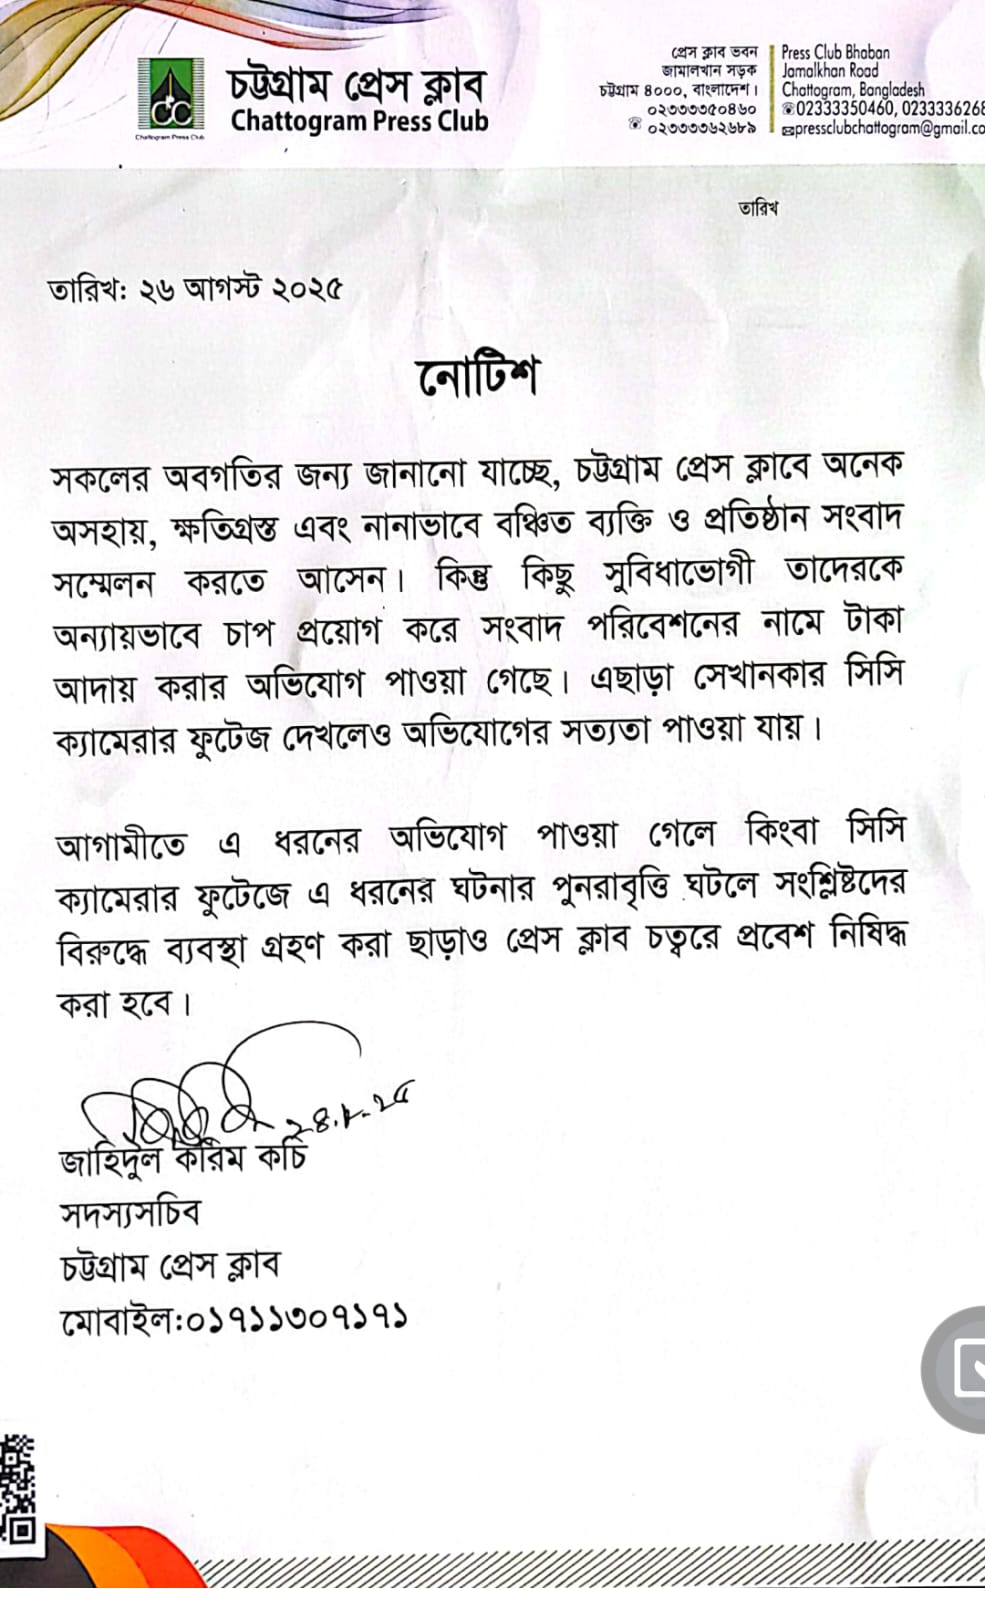 চট্টগ্রাম প্রেস ক্লাব
Chattogram Press Club
Chattogram Press Club
প্রেস ক্লাব ভবন
জামালখান সড়ক
চট্টগ্রাম ৪০০০, বাংলাদেশ।
০২৩৩৩৩৫০৪৬০
০২৩৩৩৩৬২৬৮৯
Press Club Bhaban
Jamalkhan Road
Chattogram, Bangladesh
02333350460, 0233336268
pressclubchattogram@gmail.co
তারিখ
তারিখ: ২৬ আগস্ট ২০২৫
নোটিশ
সকলের অবগতির জন্য জানানো যাচ্ছে, চট্টগ্রাম প্রেস ক্লাবে অনেক
অসহায়, ক্ষতিগ্রস্ত এবং নানাভাবে বঞ্চিত ব্যক্তি ও প্রতিষ্ঠান সংবাদ
সম্মেলন করতে আসেন। কিন্তু কিছু সুবিধাভোগী তাদেরকে
অন্যায়ভাবে চাপ প্রয়োগ করে সংবাদ পরিবেশনের নামে টাকা
আদায় করার অভিযোগ পাওয়া গেছে। এছাড়া সেখানকার সিসি
ক্যামেরার ফুটেজ দেখলেও অভিযোগের সত্যতা পাওয়া যায়।
আগামীতে এ ধরনের অভিযোগ পাওয়া গেলে কিংবা সিসি
ক্যামেরার ফুটেজে এ ধরনের ঘটনার পুনরাবৃত্তি ঘটলে সংশ্লিষ্টদের
বিরুদ্ধে ব্যবস্থা গ্রহণ করা ছাড়াও প্রেস ক্লাব চত্বরে প্রবেশ নিষিদ্ধ
করা হবে।
জাহিদুল করিম কচি
সদস্যসচিব
চট্টগ্রাম প্রেস ক্লাব
মোবাইল:০১৭১১৩০৭১৭১